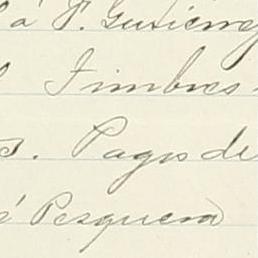 a F. Gutierrez
Timbres
Pagos de
Pesquera